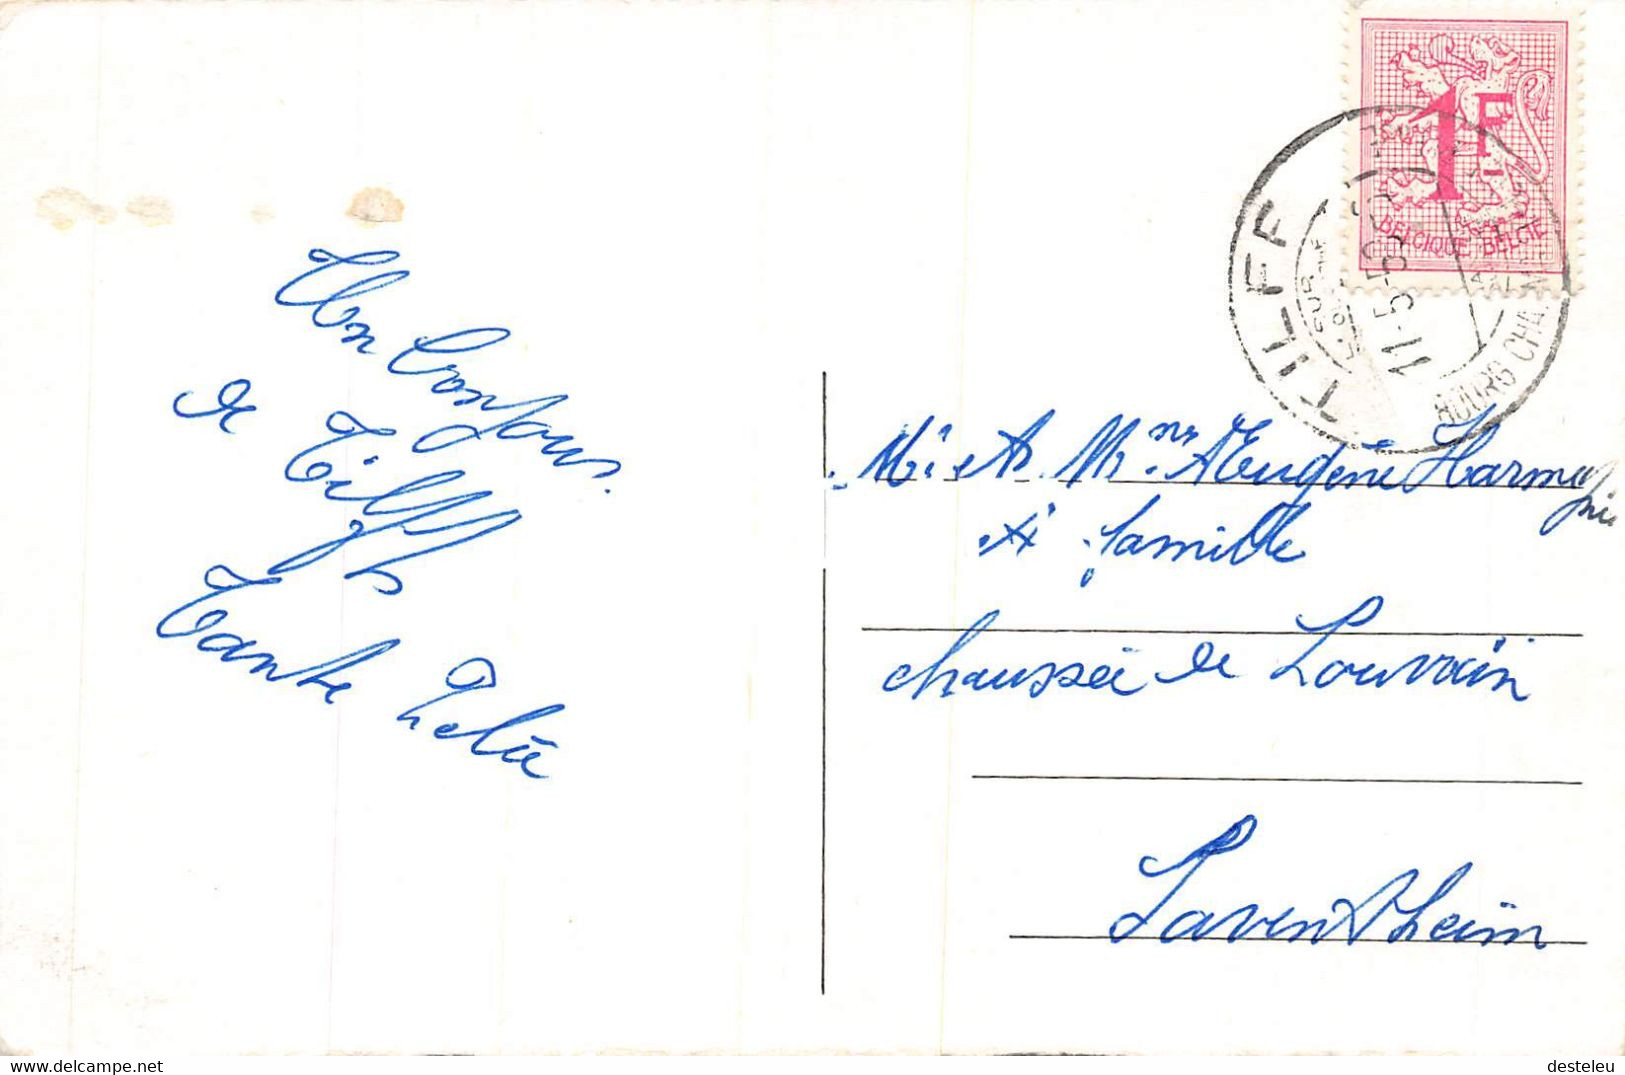 Un bonjour
de Tilff
Tante
1F
BELGIQUE BELGIE
TILFF
11-5-5
BOURG CHA
Mr et Mme Eugène
et famille
chaussée de Louvain
Saventheim
https://www.delcampe.net
desteleu